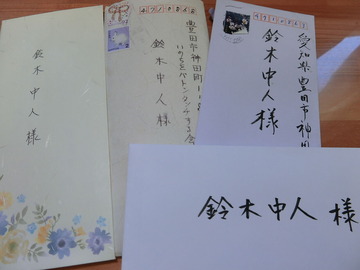 鈴木中人様
豊田市神田町1-1-8
いのちをバトンタッチする会
鈴木中人様
愛知県豊田市神田
鈴木中人様
鈴木中人様